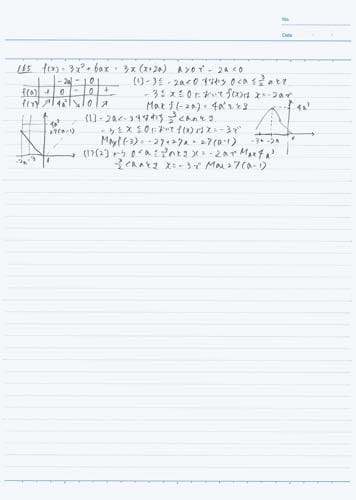 No.
Date
165 f(x) = 3x² + 6ax = 3x(x+2a) a>0で -2a<0
-2a - 0
f'(x) + 0 - 0 +
f(x) ↗ 4a³ ↘ 0 ↗
[1] -3≦-2a<0 すなわち 0<a≦3/2のとき
-3≦x≦0において f(x)は x=-2aで
Max f(-2a)=4a³をとる
[2] -2a<-3すなわち 3/2<aのとき
-3≦x≦0において f(x)は x=-3で
Max f(-3)=-27+27a=27(a-1)
[1][2]から 0<a≦3/2のとき x=-2aで Max 4a³
3/2<aのとき x=-3で Max 27(a-1)
4a³
27(a-1)
-2a -3
4a³
-3a -2a